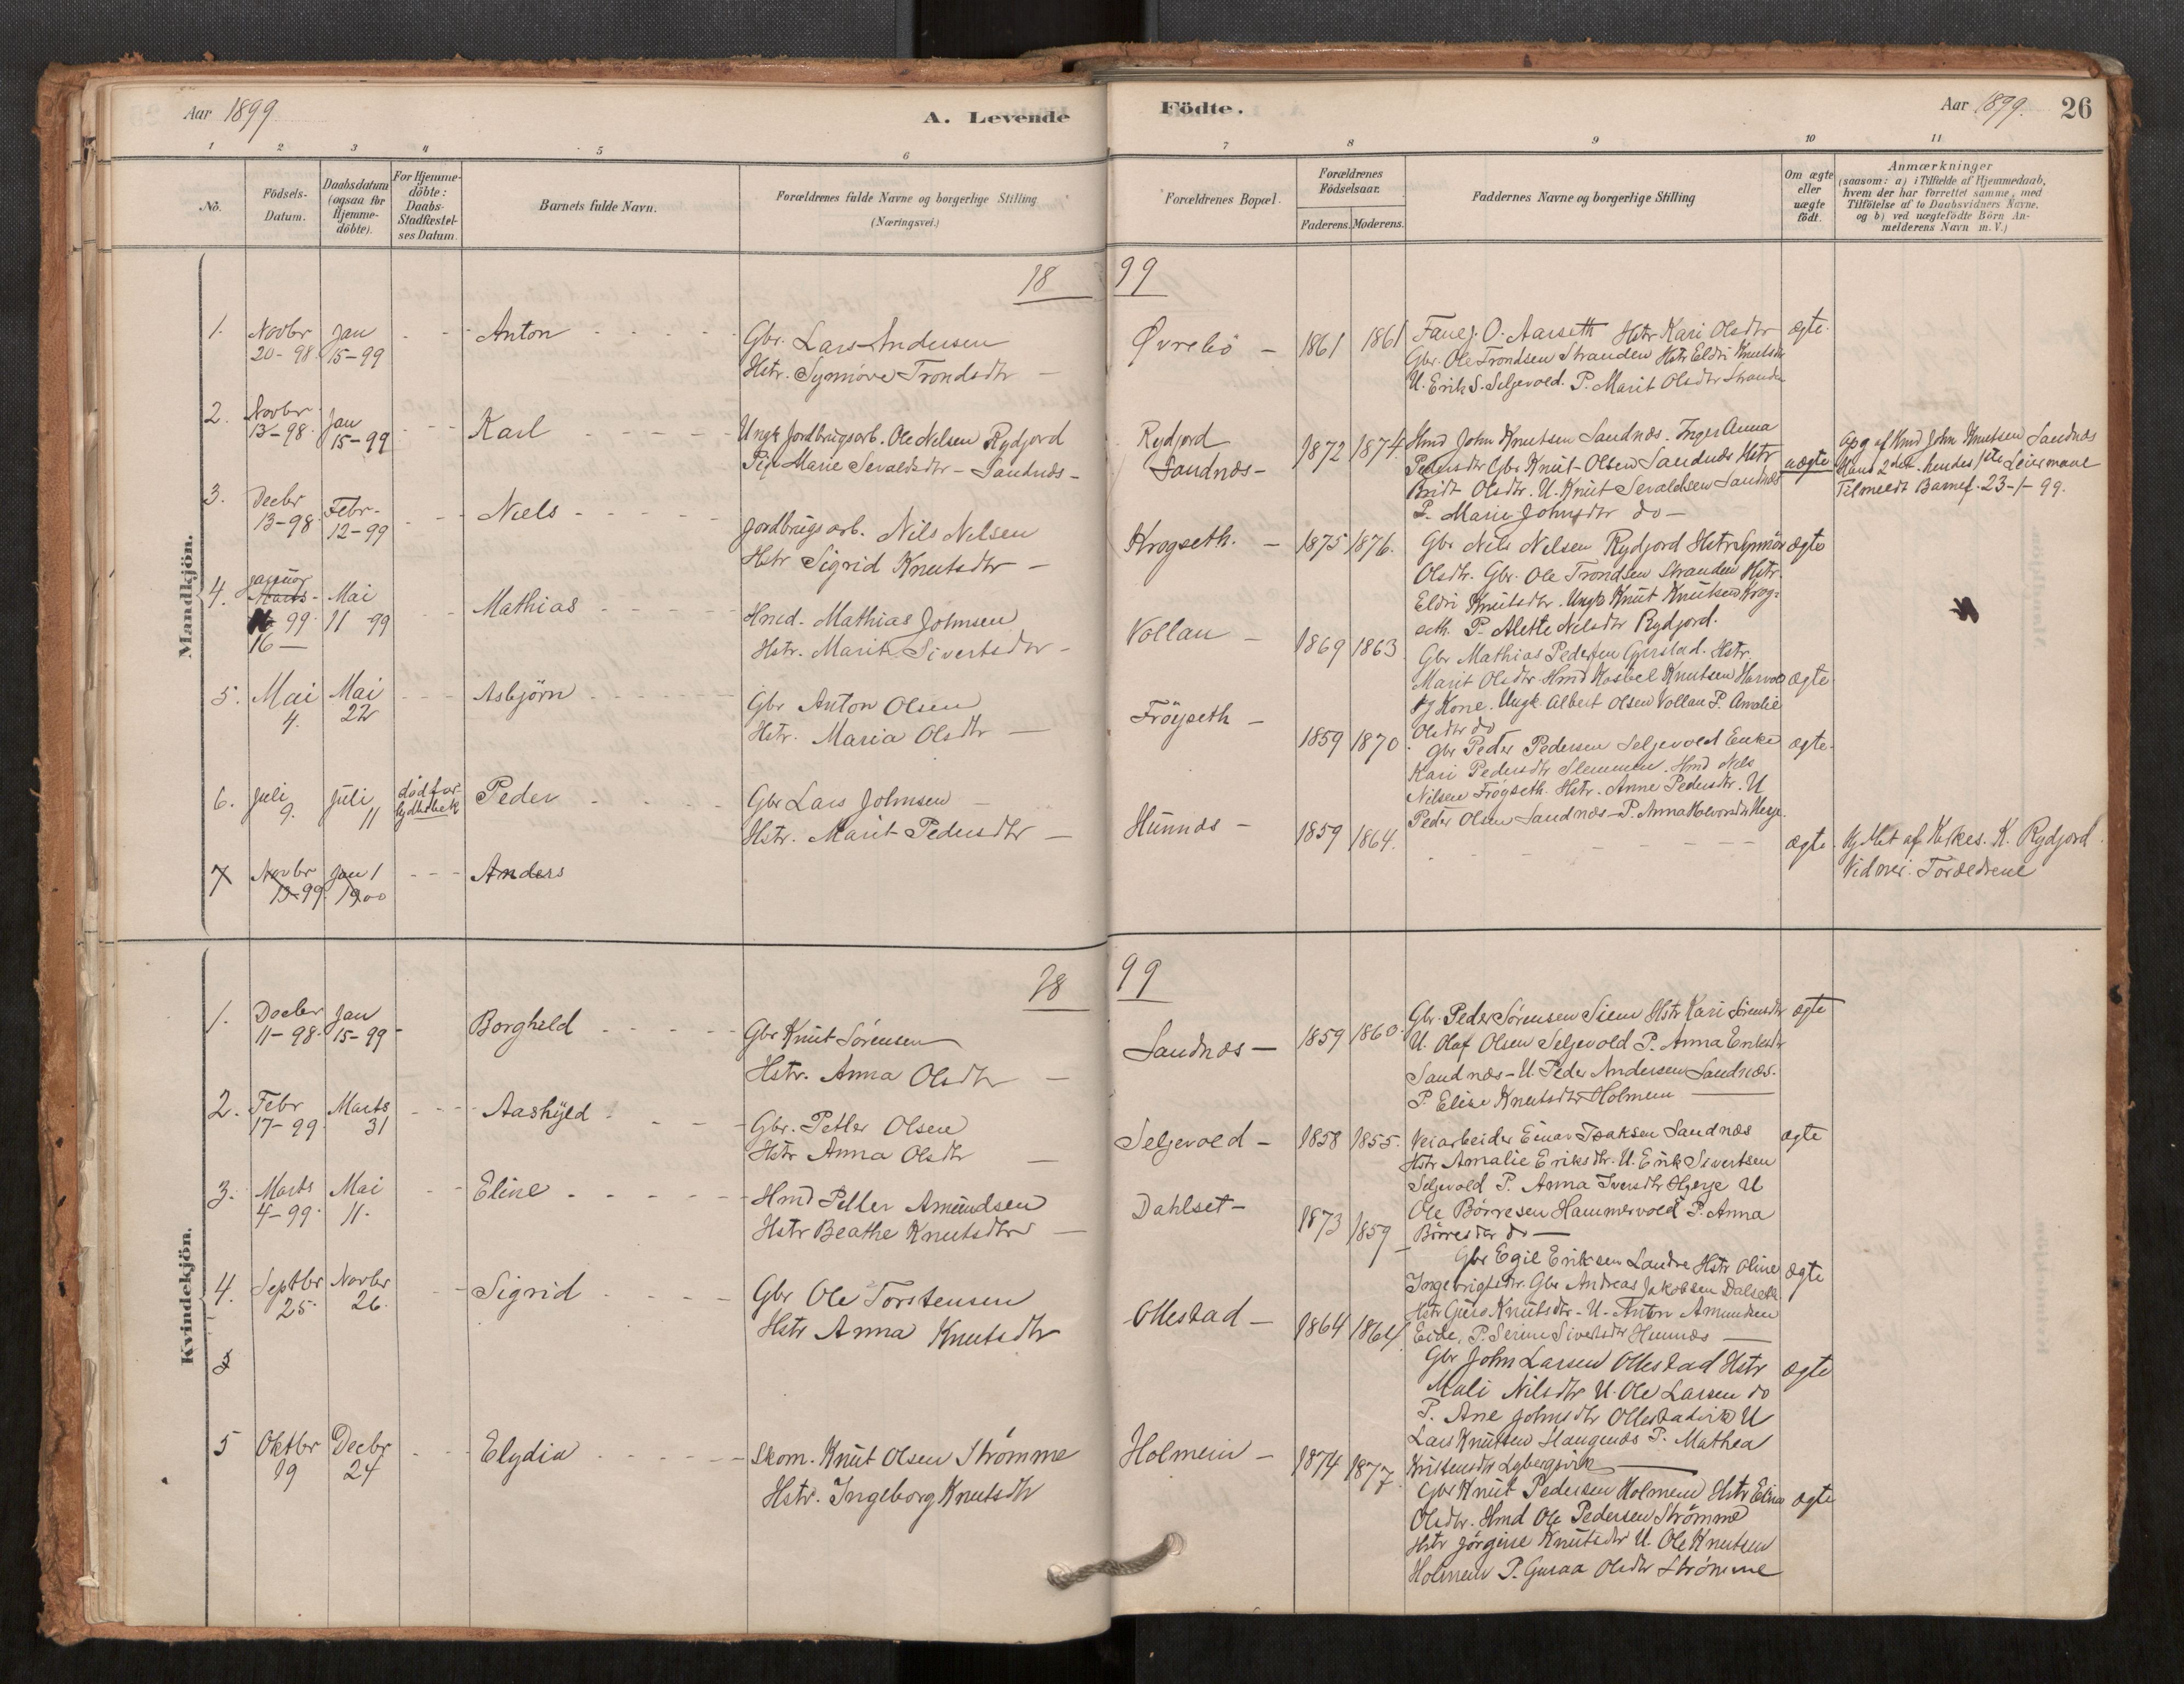 Aar 1899
A. Levende
Födte.
Aar 1899.
26
1 2 3 4 5 6 7 8 9 10 11
No.
Födsels-
Datum.
Daabsdatum
(ogsaa for
Hjemme-
döbte).
For Hjemme-
döbte:
Daabs-
Stadfæstel-
ses Datum.
Barnets fulde Navn.
Forældrenes fulde Navne og borgerlige Stilling
(Næringsvei.)
Forældrenes Bopæl.
Forældrenes
Födselsaar.
Faderens. Moderens.
Faddernes Navne og borgerlige Stilling
Om ægte
eller
uægte
födt.
Anmærkninger
(saasom: a) i Tilfælde af Hjemmedaab,
hvem der har forrettet samme, med
Tilföielse af to Daabsvidners Navne,
og b) ved uægtefödte Börn An-
melderens Navn m. V.)
Mandkjön.
18 99
1. Novbr Jan - - - Anton - - - - Gbr. Lars Andersen
20-98 15-99
Hstr. Synnöve Trondsdtr -
Övrebö - 1861 1861
O. Aarseth Hstr Kari Olsdtr ægte.
Gbr. Ole Trondsen Stranden Hstr Eldri Knutsdtr
U. Erik S. Seljevold. P. Marit Olsdtr Stranden
2. Novbr Jan - - - Karl - - - - Ungk Jordbrugsarb. Ole Nelsen Rydjord
13-98. 15-99
Pig Marie Sevaldsdtr - Sandnæs -
Rydjord
Sandnæs - 1872 1874.
Hmd John Knutsen Sandnæs. Inger Anna
Pedersdtr Gbr Knut Olsen Sandnæs Hstr uægte
Brit Olsdtr. U. Knut Sevaldsen Sandnæs
P. Marie Johnsdtr do -
Opg af Hmd John Knutsen Sandnæs
Hans 2det hendes 1ste Leiermaal
Tilmeldt 23-1-99.
3. Decbr Febr. - - Niels - - - - Jordbrugsarb. Nils Nelsen
13-98. 12-99
Hstr Sigrid Knutsdtr -
Krogseth. - 1875 1876.
Gbr Nils Nelsen Rydjord Hstr Synnöv ægte
Olsdtr. Gbr. Ole Trondsen Stranden Hstr.
Eldri Knutsdtr. Ungk Knut Knutsen Krog-
seth. P. Alette Nilsdtr Rydjord.
4. Januar
Marts - Mai - - Mathias - - - - Hmd. Mathias Johnsen
99 11 99
16 -
Hstr. Marit Sivertsdtr -
Vollan - 1869 1863
Gbr Mathias Pedersen Gjerstad. Hstr.
Marit Olsdtr Hmd Knutsen ægte
og Kone. Ungk. Albert Olsen Vollan P. Amalie
Olsdtr do
5. Mai Mai - - - Asbjörn - - - - Gbr Anton Olsen
4. 22
Hstr. Maria Olsdtr -
Fröyseth - 1859 1870.
Gbr Peder Pedersen Seljevold Enke ægte.
Kari Pedersdtr Slemmen. Hmd Nils
Nilsen Fröyseth. Hstr. Anne Pedersdtr. U
Peder Olsen Sandnæs - P. Anna Halvorsdtr
6. Juli Juli död for
9. 11 lydbebek Peder - - - - Gbr Lars Johnsen -
Hstr. Marit Pedersdtr -
Hunnæs - 1859 1864. - - - - - - ægte.
Hj. døbt af Kirkes. K. Rydjord.
Vidner: Forældrene
7 Novbr Jan 1 - - - Anders
13-99. 1900
Kvindekjön.
18 99
1. Decbr Jan - Borghild - - - - Gbr Knut Sörensen
11-98. 15-99
Hstr. Anna Olsdtr -
Sandnæs - 1859 1860.
Gbr. Peder Sörensen Siem Hstr Kari Sörensdtr ægte
U. Olaf Olsen Seljevold P. Anna Eriksdtr
Sandnæs - U. Peder Andersen Sandnæs.
P. Elise Knutsdtr Holmem
2. Febr Marts - - - Aashyld - - - Gbr. Petter Olsen
17-99. 31
Hstr Anna Olsdtr -
Seljevold - 1858 1855.
Veiarbeider Einar Isaksen Sandnæs ægte
Hstr Amalie Eriksdtr. U. Erik Sivertsen
Seljevold P. Anna Iversdtr U
Ole Börresen Hammervold P. Anna
Börresdtr do -
3. Marts Mai - - Eline - - - - Hmd Petter Amundsen
4-99. 11.
Hstr Beathe Knutsdtr -
Dahlset - 1873 1859
Gbr Egil Eriksen Landre Hstr Oline ægte
Ingebrigtsdtr. Gbr Andreas Jakobsen Dalseth
Hstr Guro Knutsdtr - U - Anton Amundsen
Eide, P. Serine Sivertsdtr Hunnæs -
4. Septbr Novbr - - Sigrid - - - - Gbr Ole Torstensen
25. 26.
Hstr Anna Knutsdtr
Ollestad - 1864 1864.
Gbr John Larsen Ollestad Hstr ægte
Mali Nilsdtr U. Ole Larsen do
P. Ane Johnsdtr Ollestadvik U
Lars Knutsen Haugenæs P. Mathea
Kristensdtr
5 Oktbr Decbr - - - Elydia - - - - Skom. Knut Olsen Strömme
19 24
Hstr. Ingeborg Knutsdtr
Holmem - 1874 1877.
Gbr Knut Pedersen Holmem Hstr Elina ægte
Olsdtr. Hmd Ole Pedersen Strömme
Hstr Jörgine Knutsdtr U. Ole Knutsen
Holmem P. Guraa Olsdtr Strömme